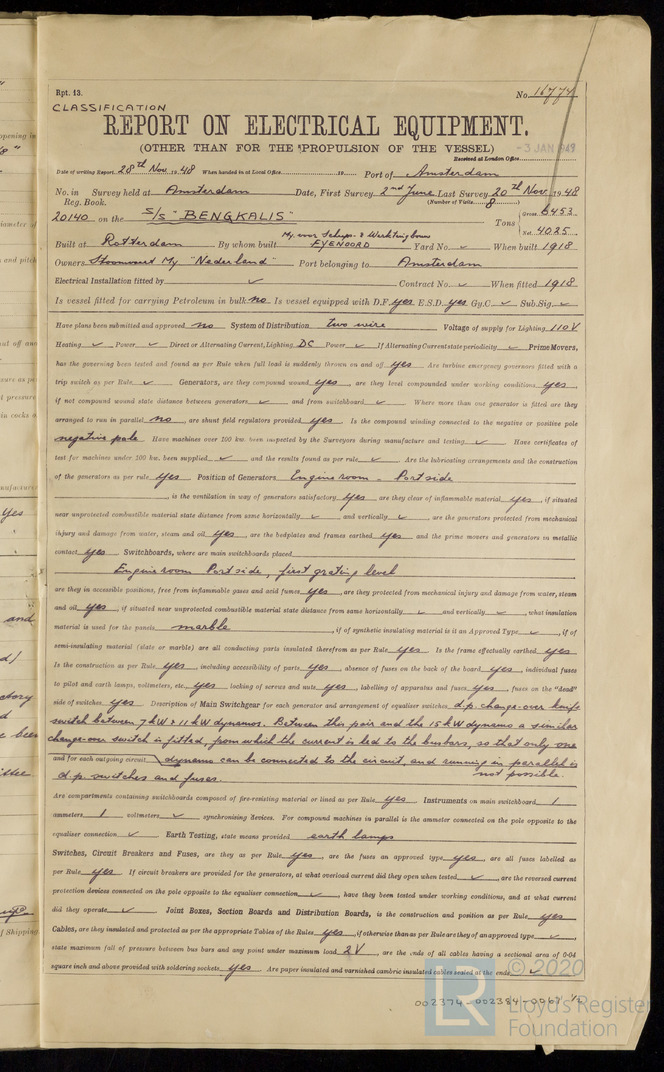 Rpt. 13.
No. 16774
CLASSIFICATION
REPORT ON ELECTRICAL EQUIPMENT.
(OTHER THAN FOR THE PROPULSION OF THE VESSEL)
-3 JAN 1949
Received at London Office
Date of writing Report 28th Nov. 1948 When handed in at Local Office 19 Port of Amsterdam
No. in Survey held at Amsterdam Date, First Survey 2nd June Last Survey 20th Nov. 1948
Reg. Book. (Number of Visits 8)
20140 on the S/S "BENGKALIS" Tons { Gross 6453
Net 4025
Built at Rotterdam By whom built My. voor Scheeps- & Werktuigbouw FYENOORD Yard No. ✓ When built 1918
Owners Stoomvaart My "Nederland" Port belonging to Amsterdam
Electrical Installation fitted by ✓ Contract No. ✓ When fitted 1918
Is vessel fitted for carrying Petroleum in bulk no Is vessel equipped with D.F. yes E.S.D. yes Gy.C. ✓ Sub.Sig. ✓
Have plans been submitted and approved no System of Distribution two wire Voltage of supply for Lighting 110V
Heating ✓ Power ✓ Direct or Alternating Current, Lighting DC Power ✓ If Alternating Current state periodicity ✓ Prime Movers,
has the governing been tested and found as per Rule when full load is suddenly thrown on and off yes Are turbine emergency governors fitted with a
trip switch as per Rule ✓ Generators, are they compound wound yes, are they level compounded under working conditions yes,
if not compound wound state distance between generators ✓ and from switchboard ✓ Where more than one generator is fitted are they
arranged to run in parallel no, are shunt field regulators provided yes Is the compound winding connected to the negative or positive pole
negative pole Have machines over 100 kw. been inspected by the Surveyors during manufacture and testing ✓ Have certificates of
test for machines under 100 kw. been supplied ✓ and the results found as per rule ✓ Are the lubricating arrangements and the construction
of the generators as per rule yes Position of Generators Engine room - Port side
, is the ventilation in way of generators satisfactory yes are they clear of inflammable material yes, if situated
near unprotected combustible material state distance from same horizontally ✓ and vertically ✓, are the generators protected from mechanical
injury and damage from water, steam and oil yes, are the bedplates and frames earthed yes and the prime movers and generators in metallic
contact yes Switchboards, where are main switchboards placed
Engine room Port side, first grating level
are they in accessible positions, free from inflammable gases and acid fumes yes, are they protected from mechanical injury and damage from water, steam
and oil yes, if situated near unprotected combustible material state distance from same horizontally ✓ and vertically ✓, what insulation
material is used for the panels marble, if of synthetic insulating material is it an Approved Type ✓, if of
semi-insulating material (slate or marble) are all conducting parts insulated therefrom as per Rule yes Is the frame effectually earthed yes
Is the construction as per Rule yes, including accessibility of parts yes, absence of fuses on the back of the board yes, individual fuses
to pilot and earth lamps, voltmeters, etc. yes locking of screws and nuts yes, labelling of apparatus and fuses yes, fuses on the "dead"
side of switches yes Description of Main Switchgear for each generator and arrangement of equaliser switches d.p. change-over knife
switch between 7 kW & 11 kW dynamos. Between this pair and the 15 kW dynamo a similar
change-over switch is fitted, from which the current is led to the busbars, so that only one
and for each outgoing circuit dynamo can be connected to the circuit, and running in parallel is
d.p. switches and fuses. not possible.
Are compartments containing switchboards composed of fire-resisting material or lined as per Rule yes Instruments on main switchboard 1
ammeters 1 voltmeters ✓ synchronising devices. For compound machines in parallel is the ammeter connected on the pole opposite to the
equaliser connection ✓ Earth Testing, state means provided earth lamps
Switches, Circuit Breakers and Fuses, are they as per Rule yes, are the fuses an approved type yes, are all fuses labelled as
per Rule yes If circuit breakers are provided for the generators, at what overload current did they open when tested ✓, are the reversed current
protection devices connected on the pole opposite to the equaliser connection ✓, have they been tested under working conditions, and at what current
did they operate ✓ Joint Boxes, Section Boards and Distribution Boards, is the construction and position as per Rule yes
Cables, are they insulated and protected as per the appropriate Tables of the Rules yes, if otherwise than as per Rule are they of an approved type ✓,
state maximum fall of pressure between bus bars and any point under maximum load 2 V, are the ends of all cables having a sectional area of 0·04
square inch and above provided with soldering sockets yes Are paper insulated and varnished cambric insulated cables sealed at the ends ✓
© 2020
002374-002384-0067 1/2
LR
Lloyd's Register
Foundation